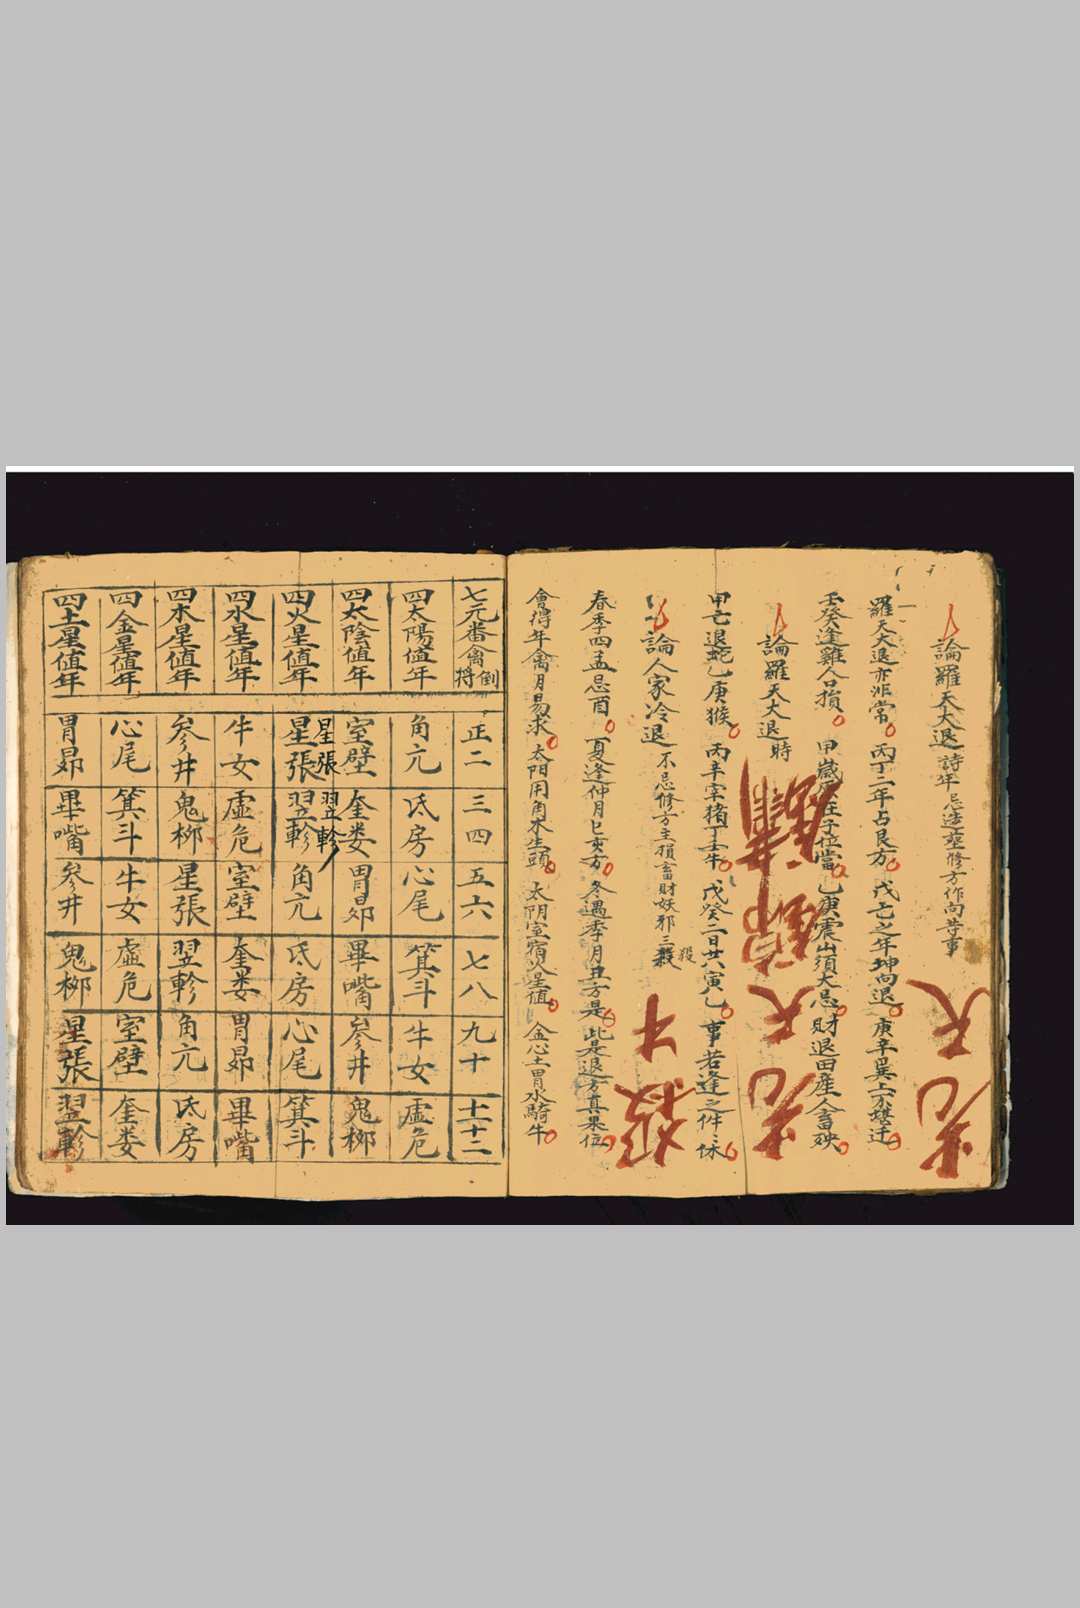 論羅天大退詩年忌造塟修方作向等事
羅天大退亦非常 丙丁二年占艮方 戊己之年坤向退 庚辛巽上不堪迁
壬癸逢雞人口損 甲歲原在子位當 乙庚震山須大忌 財退田産人畜殃
論羅天大退時
甲己退蛇乙庚猴 丙辛字猪丁壬牛 戊癸二日共寅凡 事若逢之件々休
論人家冷退不忌修方主損畜財妖邪三殺
春季四孟忌酉 夏逢仲月巳亥方 冬遇季月丑方是 此是退方真果位
會得年禽月易求 太阳用角木生頭 太阴室宿火星值 金心土胃水騎牛
天 羌
天 羌
才 殺
七元番禽倒将 正二 三四 五六 七八 九十 十一十二
四太陽值年 角亢 氐房 心尾 箕斗 牛女 虛危
四太陰值年 室壁 奎娄 胃昴 畢嘴 参井 鬼柳
星張 翌軫
四火星值年 星張 翌軫 角亢 氐房 心尾 箕斗
四水星值年 牛女 虛危 室壁 奎娄 胃昴 畢嘴
四木星值年 参井 鬼柳 星張 翌軫 角亢 氐房
四金星值年 心尾 箕斗 牛女 虛危 室壁 奎娄
四土星值年 胃昴 畢嘴 参井 鬼柳 星張 翌軫